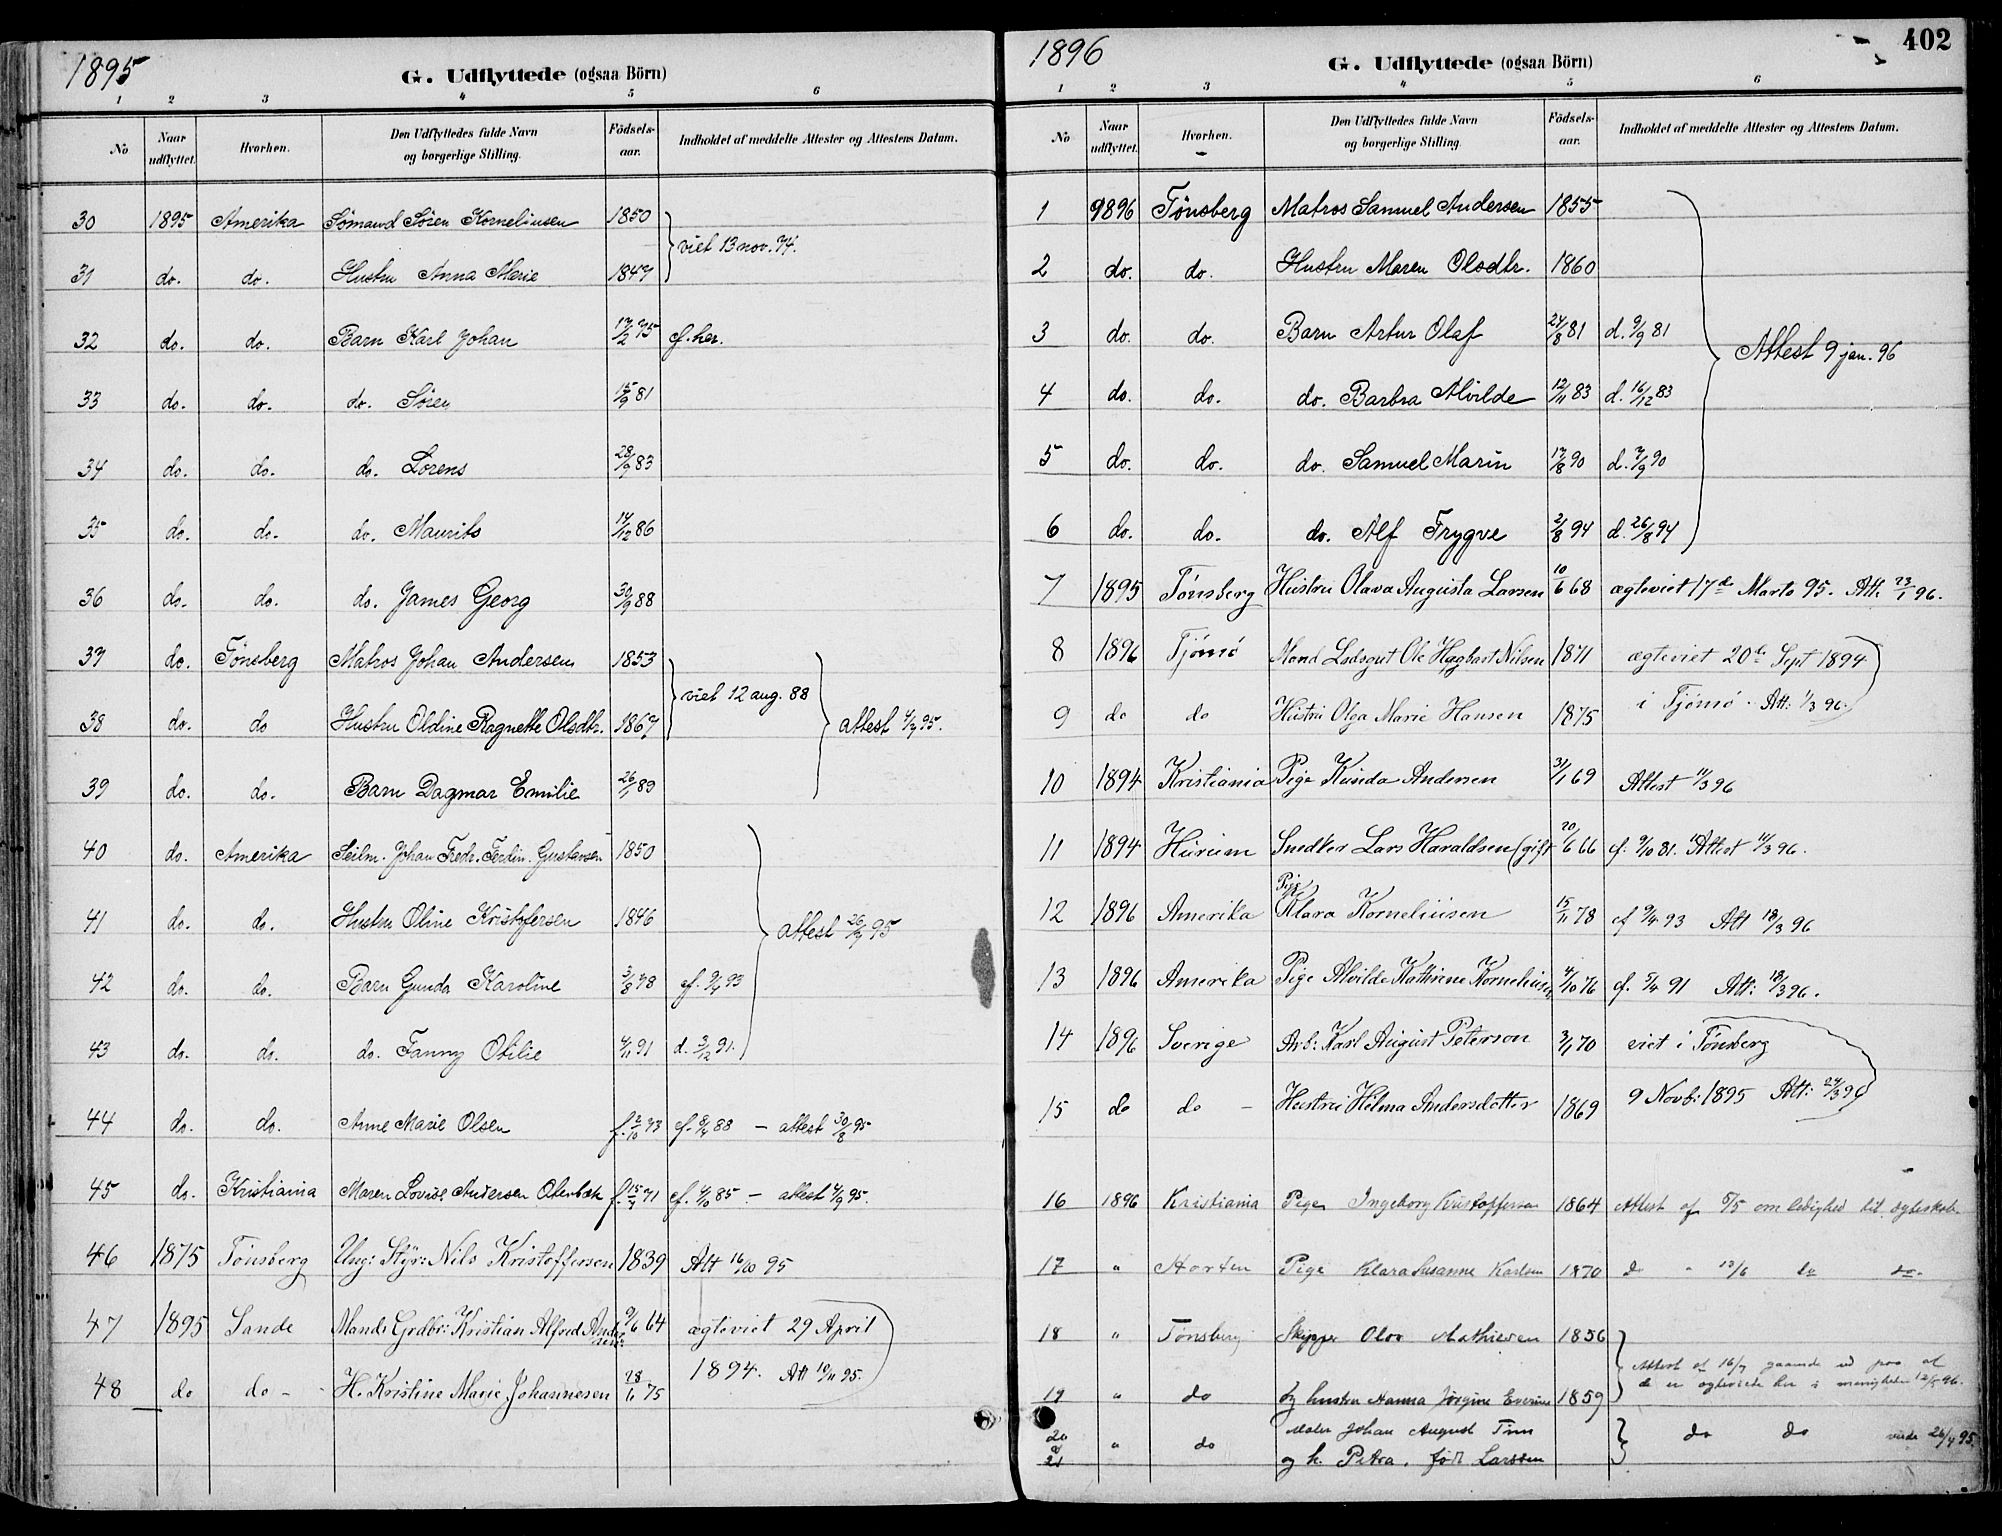 1895
G. Udflyttede (ogsaa Börn)
1 2 3 4 5 6
No Naar udflyttet. Hvorhen. Den Udflyttedes fulde Navn og borgerlige Stilling. Födsels-aar. Indholdet af meddelte Attester og Attestens Datum.
30 1895 Amerika Sömand Sören Korneliusen 1850
viet 13 nov. 74.
31 do. do. Hustru Anna Marie 1847
32 do. do. Barn Karl Johan 17/2 75 cf. her.
33 do. do. do. Sören 15/9 81
34 do. do. do. Lorens 28/9 83
35 do. do. do. Maurits 14/12 86
36 do. do. do. James Georg 30/9 88
37 do. Tönsberg Matros Johan Andersen 1853
viet 12 aug. 88
38 do. do Hustru Oldine Ragnette Olsdtr. 1867 attest 4/7 95.
39 do. do. Barn Dagmar Emilie 26/1 89
40 do. Amerika Seilm. Johan Fredr. Ferdin. Gustavsen 1850
41 do. do. Hustru Oline Kristofersen 1846 attest 26/7 95
42 do. do. Barn Gunda Karoline 3/8 78 cf. 9/4 93
43 do. do. do. Fanny Otilie 4/11 91 d. 3/12 91.
44 do. do. Anne Marie Olsen f. 2/10 73 cf. 8/4 88 – attest 30/8 95
45 do. Kristiania Maren Lovise Andersen f. 15/4 71 cf. 4/10 85 – attest 4/9 95.
46 1875 Tønsberg Ung: Styr: Nils Kristoffersen 1839 Att 16/10 95
47 1895 Sande Mand: Grdbr: Kristian Alfred Andersen 9/6 64 ægteviet 29 April
48 do do – H. Kristine Marie Johannesen 28/6 75 1894. Att 10/11 95.
1896
402
G. Udflyttede (ogsaa Börn)
1 2 3 4 5 6
No Naar udflyttet. Hvorhen. Den Udflyttedes fulde Navn og borgerlige Stilling. Födsels-aar. Indholdet af meddelte Attester og Attestens Datum.
1 9896 Tönsberg Matros Samuel Andersen 1855
2 do. do. Hustru Maren Olsdtr. 1860
3 do. do. Barn Artur Olaf 24/8 81 d. 9/9 81
Attest 9 jan. 96
4 do. do. do. Barbra Alvilde 12/11 83 d. 16/12 83
5 do. do. do. Samuel Marin 17/8 90 d. 7/9 90
6 do. do. do. Alf Trygve 2/8 94 d. 26/8 94
7 1895 Tønsberg Hustru Olava Augusta Larsen 10/6 68 ægteviet 17de Marts 95. Att: 23/1 96.
8 1896 Tjømø Mand Ole Hagbart Nilsen 1871 ægteviet 20de Sept 1894
9 do do Hustru Olga Marie Hansen 1875 i Tjømø. Att: 1/3 96.
10 1894 Kristiania Pige Kunda Andersen 31/1 69 Attest 11/3 96
11 1894 Hurum Snedker Lars Haraldsen (gift 20/6 66 cf. 9/10 81. Attest 11/3 96.
12 1896 Amerika Pige Klara Korneliusen 15/11 78 cf 9/4 93 Att 18/3 96
13 1896 Amerika Pige Alvilde Kathrine Korneliusen 4/10 76 cf. 5/4 91 Att: 18/3 96.
14 1896 Sverige Arb: Karl August Peterson 3/1 70 viet i Tønsberg
15 do do – Hustru Hilma Andersdotter 1869 9 Novb: 1895 Att: 24/3 96
16 1896 Kristiania Pige Ingeborg Kristoffersen 1864 Attest af 8/5 om ledighed til ægteskab
17 " Horten Pige Klara Susanne Karlsen 1870 do " 13/6 do do.
18 " Tønsberg Skipper Olav Mathisen 1856
Attest af 16/7 gaaende ud paa at
de er ægteviede her i menigheden 12/5 96.
19 " do og hustru Hanna Jørgine 1859
20 Maler Johan August
og " do do do viede 26/4 95.
21 og h. Petra, født Larssen